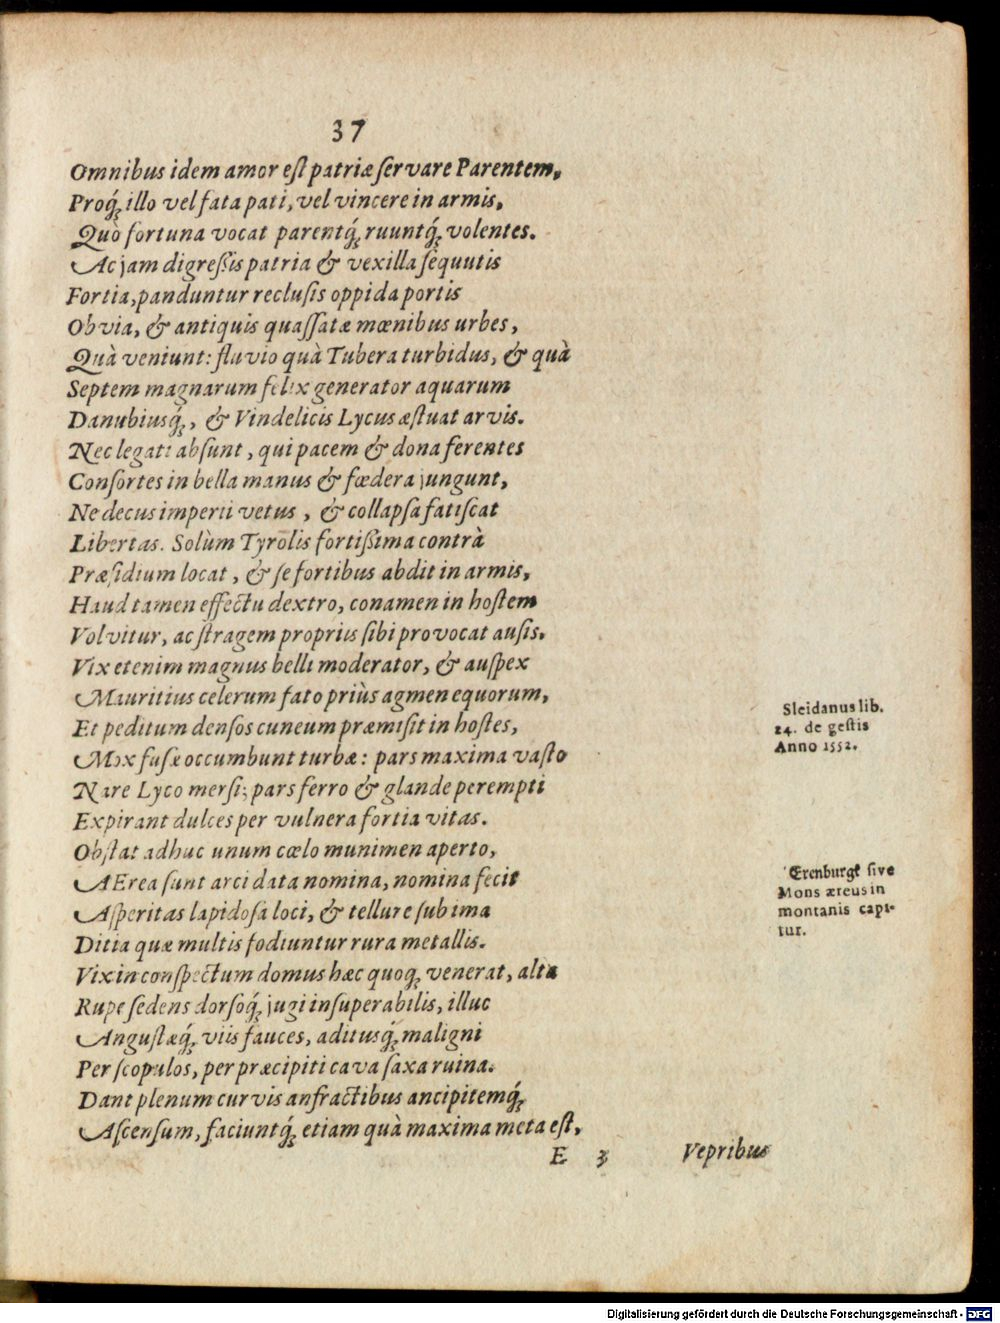 37
Omnibus idem amor est patriæ servare Parentem,
Proq́; illo vel fata pati, vel vincere in armis,
Quò fortuna vocat parentq́; ruuntq́; volentes.
Ac jam digressis patria & vexilla sequutis
Fortia, panduntur reclusis oppida portis
Obvia, & antiquis quassatæ mœnibus urbes,
Quà veniunt: fluvio quà Tubera turbidus, & quà
Septem magnarum felix generator aquarum
Danubiusq́;, & Vindelicis Lycus æstuat arvis.
Nec legati absunt, qui pacem & dona ferentes
Consortes in bella manus & fœdera jungunt,
Ne decus imperii vetus, & collapsa fatiscat
Libertas. Solùm Tyrolis fortissima contrà
Præsidium locat, & se fortibus abdit in armis,
Haud tamen effectu dextro, conamen in hostem
Volvitur, ac stragem propriis sibi provocat ausis.
Vix etenim magnus belli moderator, & auspex
Mauritius celerum fato priùs agmen equorum,
Et peditum densos cuneum præmisit in hostes,
Mox fusæ occumbunt turbæ: pars maxima vasto
Nare Lyco mersi; pars ferro & glande perempti
Expirant dulces per vulnera fortia vitas.
Obstat adhuc unum cœlo munimen aperto,
AErea sunt arci data nomina, nomina fecit
Asperitas lapidosa loci, & tellure sub ima
Ditia quæ multis fodiuntur rura metallis.
Vix in conspectum domus hæc quoq; venerat, alta
Rupe sedens dorsoq́; jugi insuperabilis, illuc
Angustæq́; viis fauces, aditusq́; maligni
Per scopulos, per præcipiti cava saxa ruina.
Dant plenum curvis anfractibus ancipitemq́;
Ascensum, faciuntq́; etiam quà maxima meta est,
E 3 Vepribus
Sleidanus lib.
24. de gestis
Anno 1552.
Erenburgk sive
Mons æreus in
montanis capi-
tur.
Digitalisierung gefördert durch die Deutsche Forschungsgemeinschaft - DFG